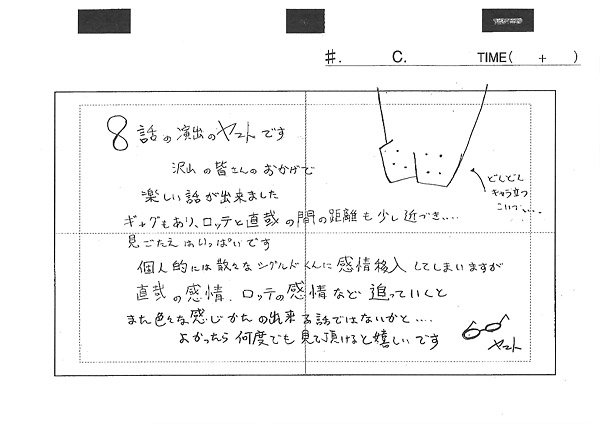 #.　C.　TIME(　+　)
8話の演出のヤマトです
沢山の皆さんのおかげで
楽しい話が出来ました
ギャグもあり、ロッテと直哉の間の距離も少し近づき....
見ごたえはいっぱいです
個人的には散々なシグルドくんに感情移入してしまいますが
直哉の感情、ロッテの感情など追っていくと
また色々な感じかたの出来る話ではないかと....
よかったら何度でも見て頂けると嬉しいです
どんどん
キャラ立つ
こいつ....
ヤマト